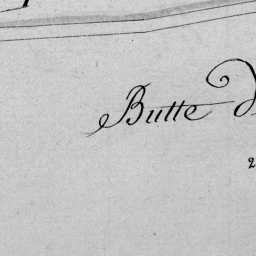 Butte
2